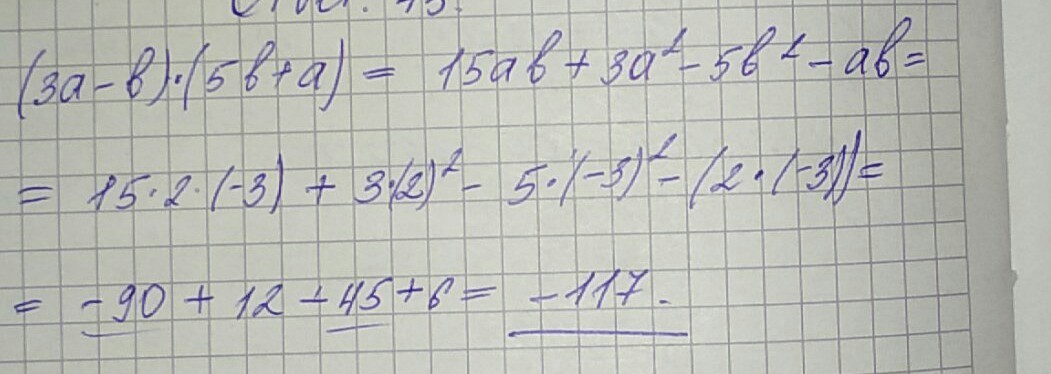 (3a-b)·(5b+a) = 15ab+3a²-5b²-ab=
= 15·2·(-3) + 3·(2)² - 5·(-3)² - (2·(-3))=
= -90 + 12 - 45 + 6 = -117.